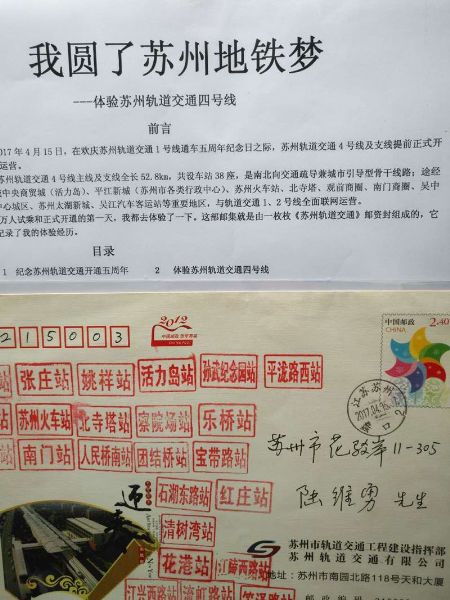 我圆了苏州地铁梦
---体验苏州轨道交通四号线
前言
2017年4月15日，在欢庆苏州轨道交通1号线通车五周年纪念日之际，苏州轨道交通4号线及支线提前正式开
运营。
苏州轨道交通4号线主线及支线全长52.8km，共设车站38座，是南北向交通疏导兼城市引导型骨干线路；途经
中央商贸城（活力岛）、平江新城（苏州市各类行政中心）、苏州火车站、北寺塔、观前商圈、南门商圈、吴中
中心城区、苏州太湖新城、吴江汽车客运站等重要地区，与轨道交通1、2号线全面联网运营。
万人试乘和正式开通的第一天，我都去体验了一下。这部邮集就是由一枚枚《苏州轨道交通》邮资封组成的，它
记录了我的体验经历。
目录
1 纪念苏州轨道交通开通五周年 2 体验苏州轨道交通四号线
215003
2012
中国邮政
CHINA
2.40
江苏苏州
2017.04.15
站 张庄站 姚祥站 活力岛站 孙武纪念园站 平泷路西站
站 苏州火车站 北寺塔站 察院场站 乐桥站
站 南门站 人民桥南站 团结桥站 宝带路站
石湖东路站 红庄站
清树湾站
花港站 江陵西路站
江兴西路站 流虹路站 笠泽路站
迎
苏州市花驳岸11-305
陆维勇 先生
苏州市轨道交通工程建设指挥部
苏州轨道交通有限公司
地址：苏州市南园北路118号天和大厦
邮政编码